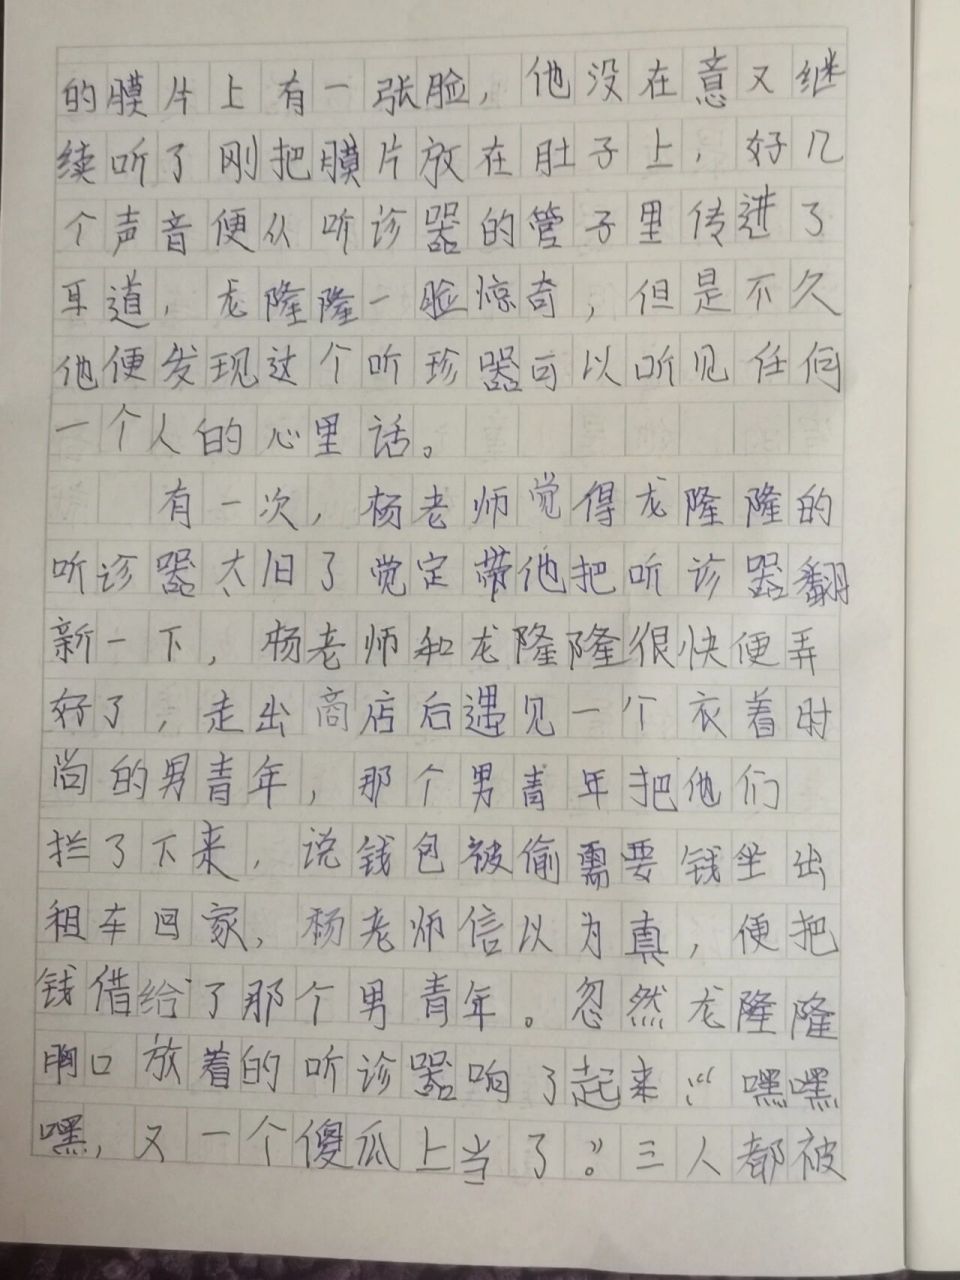 的膜片上有一张脸，他没在意又继
续听了刚把膜片放在肚子上，好几
个声音便从听诊器的管子里传进了
耳道，龙隆隆一脸惊奇，但是不久
他便发现这个听珍器可以听见任何
一个人的心里话。
有一次，杨老师觉得龙隆隆的
听诊器太旧了觉定带他把听诊器翻
新一下，杨老师和龙隆隆很快便弄
好了，走出商店后遇见一个衣着时
尚的男青年，那个男青年把他们
拦了下来，说钱包被偷需要钱坐出
租车回家，杨老师信以为真，便把
钱借给了那个男青年。忽然龙隆隆
胸口放着的听诊器响了起来：“嘿嘿
嘿，又一个傻瓜上当了。”三人都被